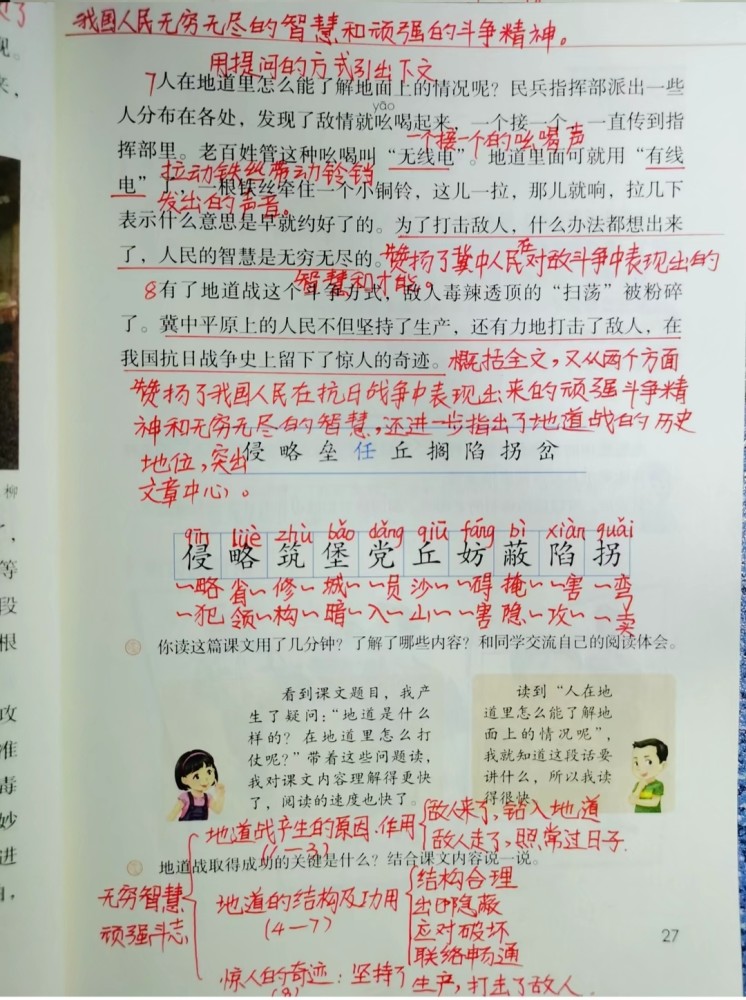 我国人民无穷无尽的智慧和顽强的斗争精神。
用提问的方式引出下文
7人在地道里怎么能了解地面上的情况呢？民兵指挥部派出一些
yāo
人分布在各处，发现了敌情就吆喝起来，一个接一个，一直传到指
一个接一个的吆喝声
挥部里。老百姓管这种吆喝叫“无线电”。地道里面可就用“有线
拉动铁丝带动铃铛
电”了，一根铁丝牵住一个小铜铃，这儿一拉，那儿就响，拉几下
发出的声音。
表示什么意思是早就约好了的。为了打击敌人，什么办法都想出来
了，人民的智慧是无穷无尽的。赞扬了冀中人民在对敌斗争中表现出的
智慧和才能。
8有了地道战这个斗争方式，敌人毒辣透顶的“扫荡”被粉碎
了。冀中平原上的人民不但坚持了生产，还有力地打击了敌人，在
我国抗日战争史上留下了惊人的奇迹。概括全文，又从两个方面
赞扬了我国人民在抗日战争中表现出来的顽强斗争精
神和无穷无尽的智慧，还进一步指出了地道战的历史
地位，突出
侵 略 垒 任 丘 搁 陷 拐 岔
文章中心。
qīn lüè zhù bǎo dǎng qiū fáng bì xiàn guǎi
侵 略 筑 堡 党 丘 妨 蔽 陷 拐
~略 省~ 修~ 城~ ~员 沙~ ~碍 掩~ ~害 ~弯
~犯 领~ ~构 ~暗 ~入 ~山 ~害 隐~ 攻~ ~卖
你读这篇课文用了几分钟？了解了哪些内容？和同学交流自己的阅读体会。
看到课文题目，我产
生了疑问：“地道是什么
样的？在地道里怎么打
仗呢？”带着这些问题读，
我对课文内容理解得更快
了，阅读的速度也快了。
读到“人在地
道里怎么能了解地
面上的情况呢”，
我就知道这段话要
讲什么，所以我读
得很快。
地道战产生的原因、作用
(1—3)
敌人来了，钻入地道
敌人走了，照常过日子
地道战取得成功的关键是什么？结合课文内容说一说。
无穷智慧
顽强斗志
地道的结构及功用
(4—7)
结构合理
出口隐蔽
应对破坏
联络畅通
惊人的奇迹：坚持了生产，打击了敌人
(8)
27
柳
等
段
根
攻
准
毒
妙
进